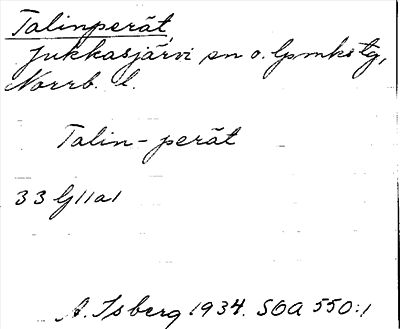 Talinperät
Jukkasjärvi sn o. lpmks tg,
Norrb. l.
Talin-perät
33 G11a1
A. Isberg 1934. SOA 550:1